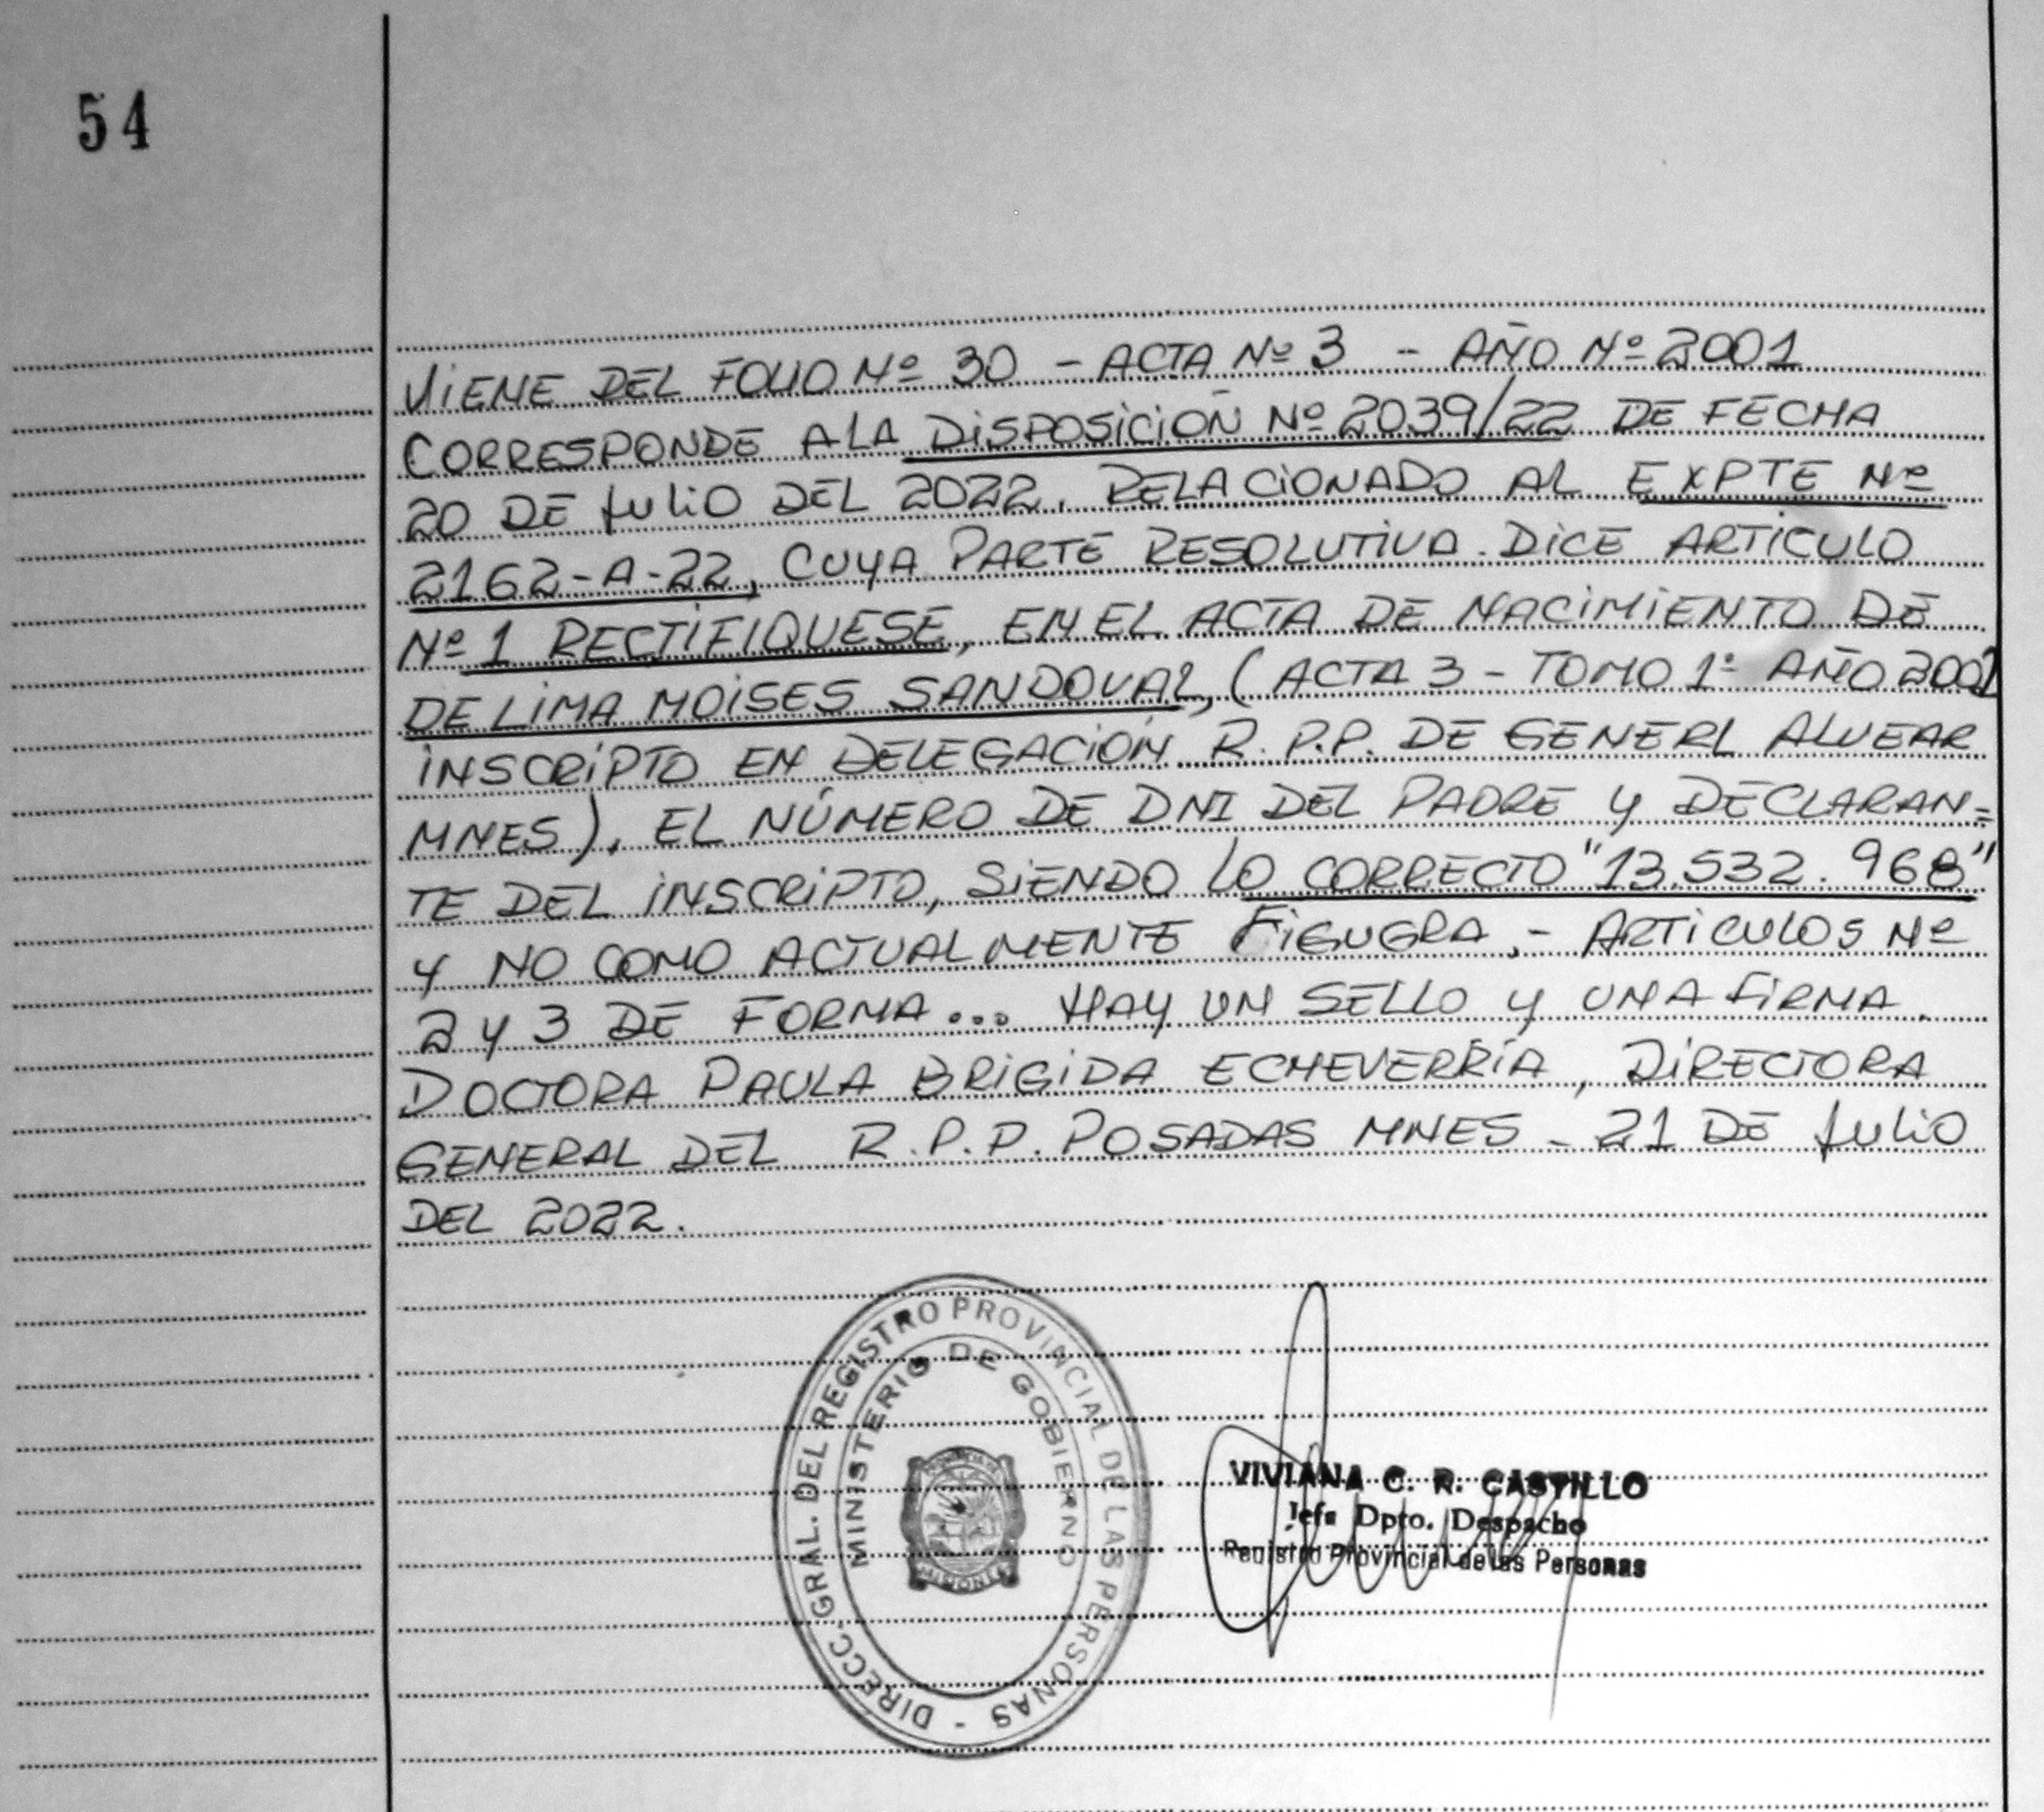 54
VIENE DEL FOLIO Nº 30 - ACTA Nº 3 - AÑO Nº 2001
CORRESPONDE A LA DISPOSICIÓN Nº 2039/22 DE FECHA
20 DE JULIO DEL 2022. RELACIONADO AL EXPTE Nº
2162-A-22, CUYA PARTE RESOLUTIVA. DICE ARTICULO
Nº 1 RECTIFIQUESE, EN EL ACTA DE NACIMIENTO DE
DE LIMA MOISES SANDOVAL, (ACTA 3 - TOMO 1º AÑO 2001
INSCRIPTO EN DELEGACIÓN R.P.P. DE GENERL ALVEAR
MNES). EL NÚMERO DE DNI DEL PADRE Y DECLARAN=
TE DEL INSCRIPTO, SIENDO LO CORRECTO "13.532.968"
Y NO COMO ACTUALMENTE FIGUGRA.- ARTICULOS Nº
2 Y 3 DE FORMA... HAY UN SELLO Y UNA FIRMA.
DOCTORA PAULA BRIGIDA ECHEVERRÍA, DIRECTORA
GENERAL DEL R.P.P. POSADAS MNES - 21 DE JULIO
DEL 2022.
DIRECC. GRAL. DEL REGISTRO PROVINCIAL DE LAS PERSONAS -
MINISTERIO DE GOBIERNO
MISIONES
VIVIANA C. R. CASTILLO
Jefa Dpto. Despacho
Registro Provincial de las Personas